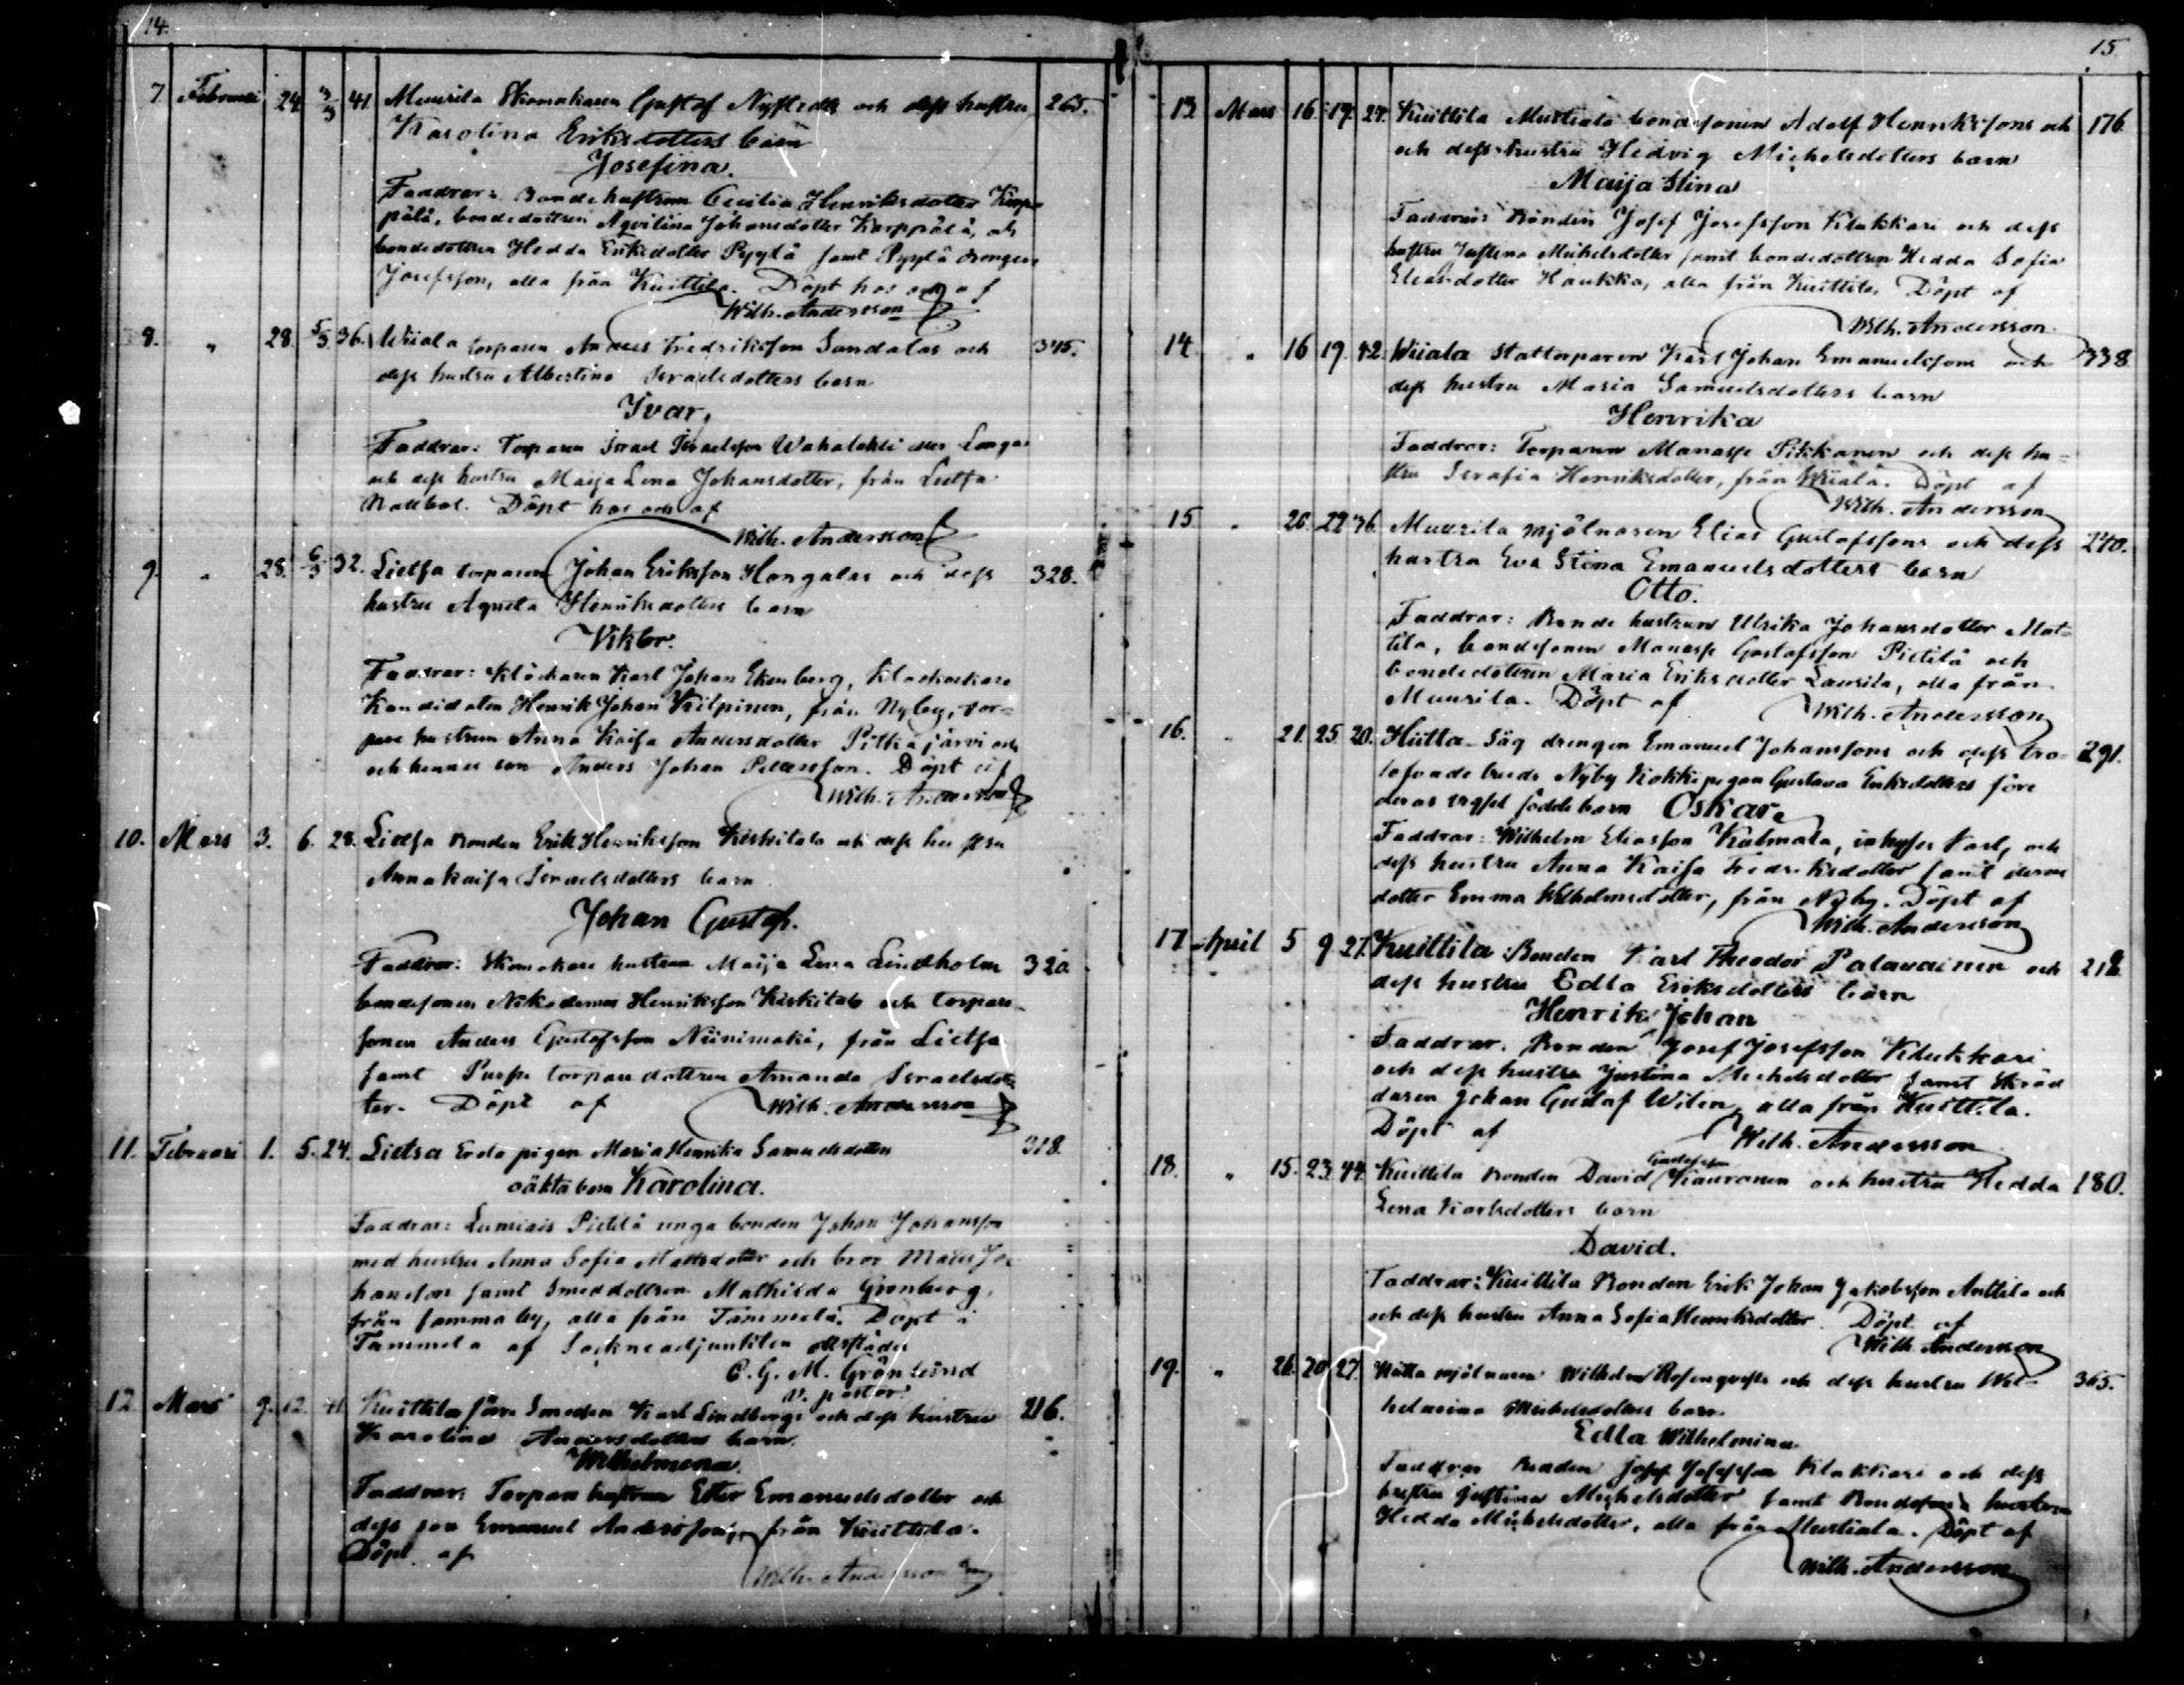 14.
7 Februari 24 3/3 41. Muurila Skomakaren Gustaf Nystedts och dess hustru 265.
Karolina Eriksdotters barn
Josefina.
Faddrar: Bonde hustrun Cecilia Henriksdotter Karp-
pälä, bondedottren Aqvilina Johansdotter Karppälä, och
bondedottren Hedda Eriksdotter Pyytä samt Pyytä drengen
Josefsson, alla från Kuittila. Döpt hos och af
Wilh. Andersson
8. " 28. 5/3 36. Wiiala torparen Anders Fredriksson Sandalas och 345.
dess hustru Albertina Israelsdotters barn
Ivar,
Faddrar: Torparen Israel Israelsson Wahalahti eller Longas
och dess hustru Maija Lena Johansdotter, från Lietsa
Nattbol. Döpt hos och af
Wilh. Andersson
9. " 28. 6/3 32. Lietsa torparen Johan Eriksson Hongalas och dess 328.
hustru Agneta Henriksdotters barn
Viktor.
Faddrar: Klockaren Karl Johan Ekenberg, Klockare
Kandidaten Henrik Johan Kilpinen, från Nyby, tor-
pare hustrun Anna Kaisa Andersdotter Pitkäjärvi och
och hennes son Anders Johan Petersson. Döpt af
Wilh. Andersson
10. Mars 3. 6. 28. Lietsa Bonden Erik Henriksson Keskitalo och dess hustru
Annakaisa Israelsdotters barn
Johan Gustaf.
Faddrar: Skomakare hustrun Maija Lena Lindholm 320
bondesonen Nikodemus Henriksson Keskitalo och torpare-
sonen Anders Gustafsson Niinimäki, från Lietsa
samt Pusse torpare dottren Amanda Israelsdot-
ter. Döpt af Wilh. Andersson
11. Februari 1. 5. 24. Lietsa Erola pigan Maria Henrika Samuelsdotters 318.
oäkta barn Karolina.
Faddrar: Lunniais Pietilä unga bonden Johan Johansson
med hustru Anna Sofia Mattsdotter och bror Matts Jo-
hansson samt Smeddottren Mathilda Grönberg,
från samma by, alla från Tammela. Döpt i
Tammela af Sockneadjunkten derstädes
C. G. M. Grönlund
v. pastor.
12 Mars 9. 12. 41. Kuittila förre Smeden Karl Lindbergs och dess hustru 216.
Karolina Andersdotters barn
Wilhelmina.
Faddrar: Torpare hustrun Ester Emanuelsdotter och
dess son Emanuel Andersson, från Kuittila.
Döpt af
Wilh. Andersson
15
13 Mars 16. 19. 27. Kuittila Murtiala bondesonen Adolf Henrikssons och 176.
och dess hustru Hedvig Michelsdotters barn
Maija Stina
Faddrar: Bonden Josef Josefsson Klukkari och dess
hustru Justina Michelsdotter samt bondedottren Hedda Sofia
Eliasdotter Haukka, alla från Kuittila. Döpt af
Wilh. Andersson.
14. " 16 19. 42. Wiiala Stattorparen Karl Johan Emanuelssons och 338
dess hustru Maria Samuelsdotters barn
Henrika
Faddrar: Torparen Manasse Pikkanen och dess hu-
stru Serafia Henriksdotter, från Wiiala. Döpt af
Wilh. Andersson
15 " 20. 22 36. Muurila mjölnaren Elias Gustafssons och dess 270.
hustru Eva Stina Emanuelsdotters barn
Otto.
Faddrar: Bonde hustrun Ulrika Johansdotter Mat-
tila, bondesonen Manasse Gustafsson Pietilä och
bondedottren Maria Eriksdotter Laurila, alla från
Muurila. Döpt af Wilh. Andersson
16. " 21. 25. 20. Hiitta Såg drengen Emanuel Johanssons och dess tro- 291.
lofvade brud Nyby Kokkipigan Gustava Eriksdotters före
deras vigsel födde barn Oskar.
Faddrar: Wilhelm Eliasson Kulmala, inhyses karl, och
dess hustru Anna Kaisa Fredriksdotter samt deras
dotter Emma Wilhelmsdotter, från Nyby. Döpt af
Wilh. Andersson
17 April 5 9 27. Kuittila Bonden Karl Theodor Palavainen och 218.
dess hustru Edla Eriksdotters barn
Henrik Johan
Faddrar: Bonden Josef Josefsson Klukkari
och dess hustru Justina Michelsdotter samt Skräd
daren Johan Gustaf Wilen, alla från Kuittila.
Döpt af Wilh. Andersson
18. " 15. 23. 44. Kuittila Bonden David Gustafsson Kauranen och hustru Hedda 180.
Lena Karlsdotters barn
David.
Faddrar: Kuittila Bonden Erik Johan Jakobsson Anttila och
och dess hustru Anna Sofia Henriksdotter. Döpt af
Wilh. Andersson
19. " 26. 20 27. Hiitta mjölnaren Wilhelm Rosenqvists och dess hustru Wil- 365.
helmina Michelsdotters barn
Edla Wilhelmina.
Faddrar Bonden Josef Josefsson Klukkari och dess
hustru Justina Michelsdotter samt Bondesons hustrun
Hedda Michelsdotter, alla från Murtiala. Döpt af
Wilh. Andersson